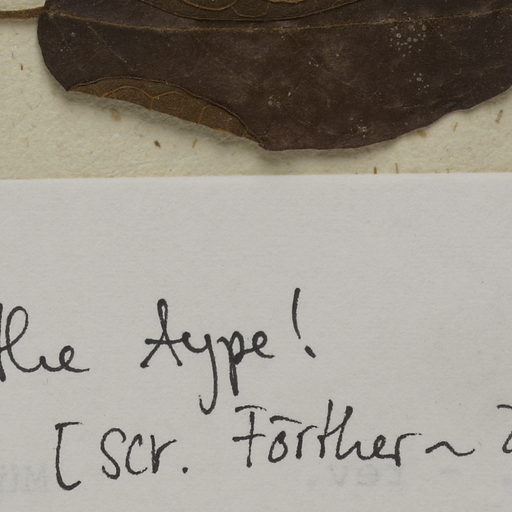 the type!
[scr. Förther ~